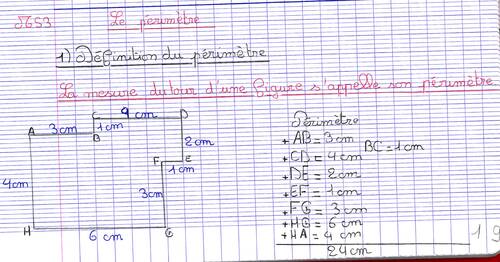 N6S3
Le périmètre
1) Définition du périmètre
La mesure du tour d'une figure s'appelle son périmètre
C 9 cm D
A 3cm 1cm B
2cm
F E
1cm
4cm
3cm
H 6cm G
Périmètre
+ AB = 3cm
BC = 1cm
+ CD = 4cm
+ DE = 2cm
+ EF = 1cm
+ FG = 3cm
+ HG = 6cm
+ HA = 4cm
24cm
19